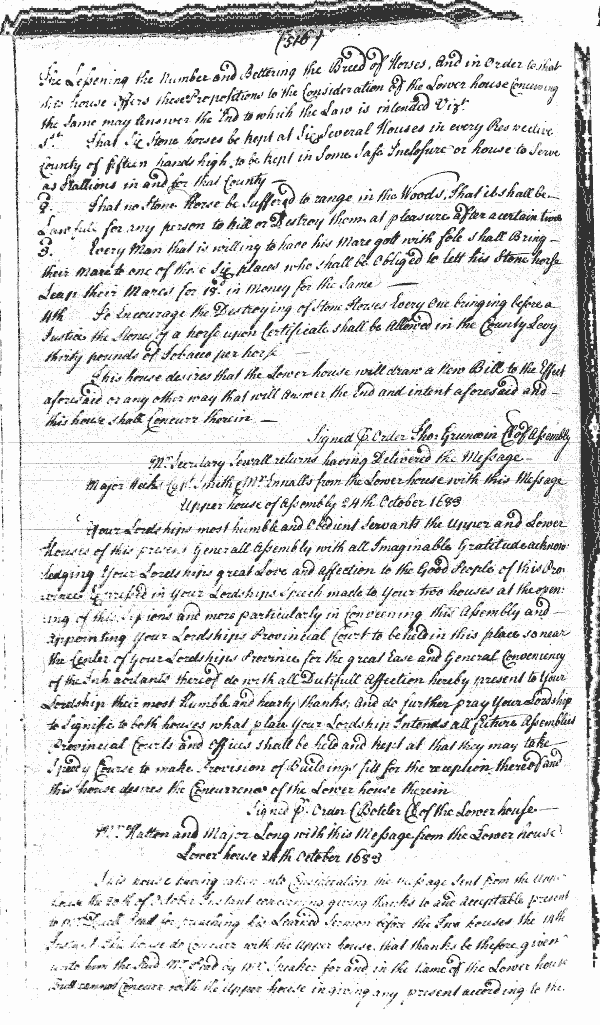 (516)
The Lessening the Number and Bettering the Breed of Horses, And in Order to that
this house offers these Propositions to the Consideration of the Lower house Conceiving
the Same may Answer the End to which the Law is intended Vizt
1st That Six Stone horses be kept at Six Several Houses in every Respective
County of fifteen hands high, to be kept in Some Safe Inclosure or house to Serve
as Stallions in and for that County —
2. That no Stone Horse be Suffered to range in the Woods, That it shall be
Lawfull for any person to kill or Destroy them at pleasure after a certain time
3. Every Man that is willing to have his Mare gott with fole shall Bring
their Mare to one of those Six places who shall be Obliged to lett his Stone horse
Leap their Mares for 18d. in Money for the Same —
4th To Encourage the Destroying of Stone Horses Every One bringing before a
Justice the Stones of a horse upon Certificate shall be Allowed in the County Levy
thirty pounds of Tobacco per horse
This house desires that the Lower house will draw a New Bill to the Effect
aforesaid or any other way that will Answer the End and intent aforesaid and
this house shall Concurr therein —
Signed P. Order Thos Grunwin Cl of Assembly
Mr. Secretary Sewall returns having Delivered the Message
Major Hicks Capt. Smith & Mr. Ennalls from the Lower house with this Message
Upper house of Assembly 24th October 1683
Your Lordships most humble and Obedient Servants the Upper and Lower
Houses of this present Generall Assembly with all Imaginable Gratitude acknow-
ledging Your Lordships great Love and Affection to the Good People of this Pro-
vince Expressed in Your Lordships Speech made to Your two houses at the open-
ing of this Sessions and more particularly in Conveening this Assembly and
Appointing Your Lordships Provincial Court to be held in this place so near
the Center of Your Lordships Province for the great Ease and General Conveniency
of the Inhabitants thereof do with all Dutifull Affection hereby present to Your
Lordship their most Humble and hearty thanks, And do further pray Your Lordship
to Signifie to both houses what place Your Lordship Intends all future Assemblies
Provincial Courts and Offices shall be held and kept at that they may take
Speedy Course to make Provision of Buildings fitt for the reception thereof and
this house desires the Concurrence of the Lower house therein
Signed P. Order C Boteler Cl of the Lower house
Mr. Hatton and Major Long with this Message from the Lower house
Lower house 24th October 1683
This house having taken into Consideration the Message Sent from the Upper
house the 20th of October Instant concerning giving thanks to and acceptable present
to Mr. Pead for preaching his Learned Sermon before the Two houses the 14th
Instant This house do Concurr with the Upper house, that thanks be therefore given
unto him the Said Mr. Pead by Mr. Speaker for and in the Name of the Lower house
But cannot Concurr with the Upper house in giving any present according to the